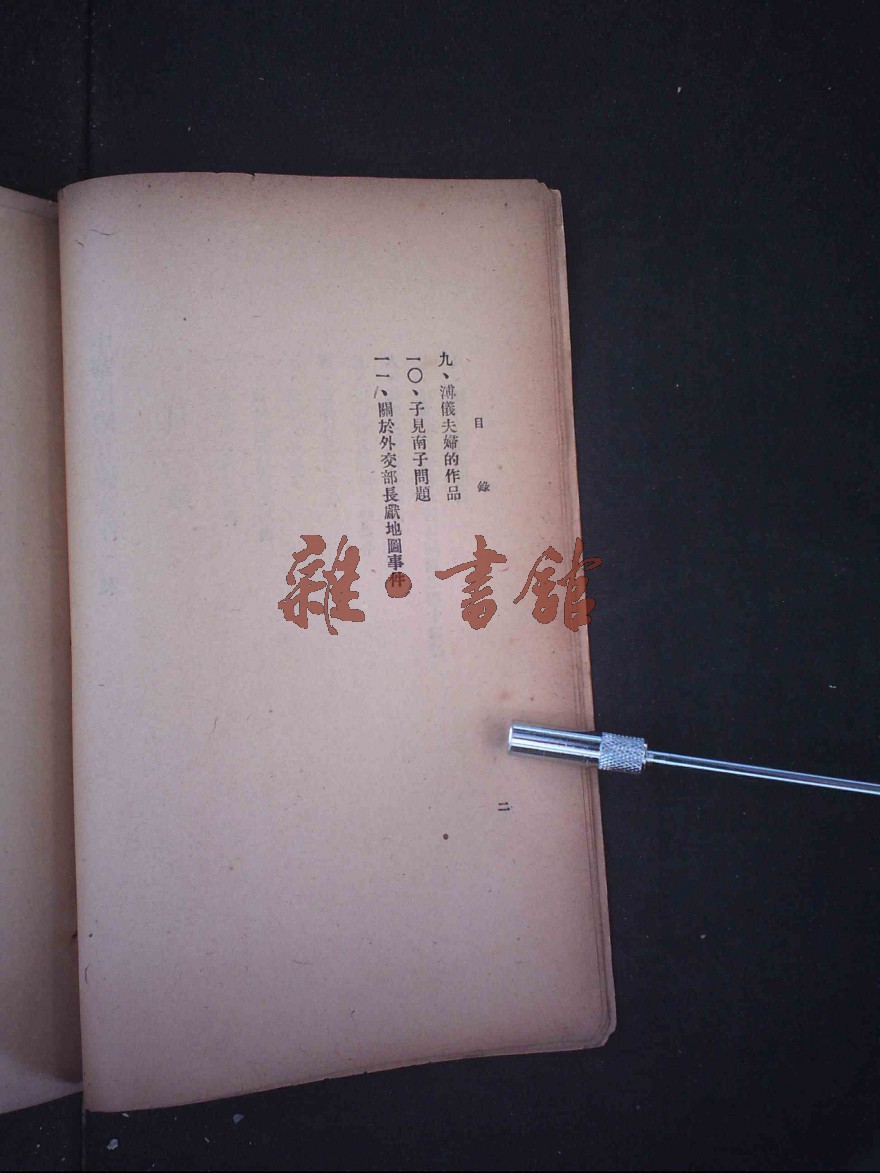 目錄
九、溥儀夫婦的作品
一〇、子見南子問題
一一、關於外交部長獻地圖事件
二
雜·書館